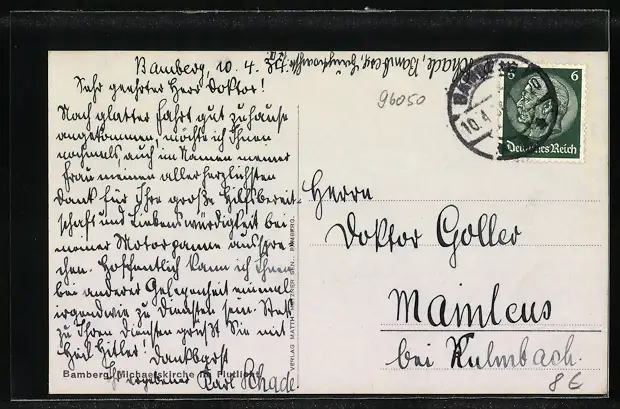 Bamberg, 10. 4. 34.
Sehr geehrter Herr Doktor!
Nach glatter Fahrt gut zuhause
angekommen, möchte ich Ihnen
nochmals, auch im Namen meiner
Frau meinen allerherzlichsten
Dank für Ihre große Hilfsbereit-
schaft und Liebenswürdigkeit bei
meiner Motorpanne ausspre-
chen. Hoffentlich kann ich Ihnen
bei anderer Gelegenheit einmal
irgendwie zu Diensten sein. Stets
zu Ihren Diensten grüßt Sie mit
Heil Hitler! Dankbarst
Ihr ergebener Karl Schade
Schade, Bamberg,
Bamberg, Michaelskirche im Flutlicht
VERLAG MATTH. BAMBERG.
96050
BAMBERG
10.4.
6
Deutsches Reich
Herrn
Doktor Goller
Mainleus
bei Kulmbach.
8 €